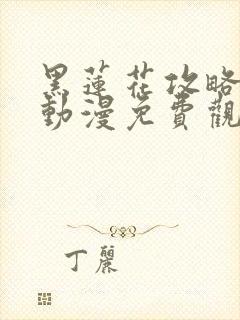 黑蓮花攻略
動漫免費觀
丁麗